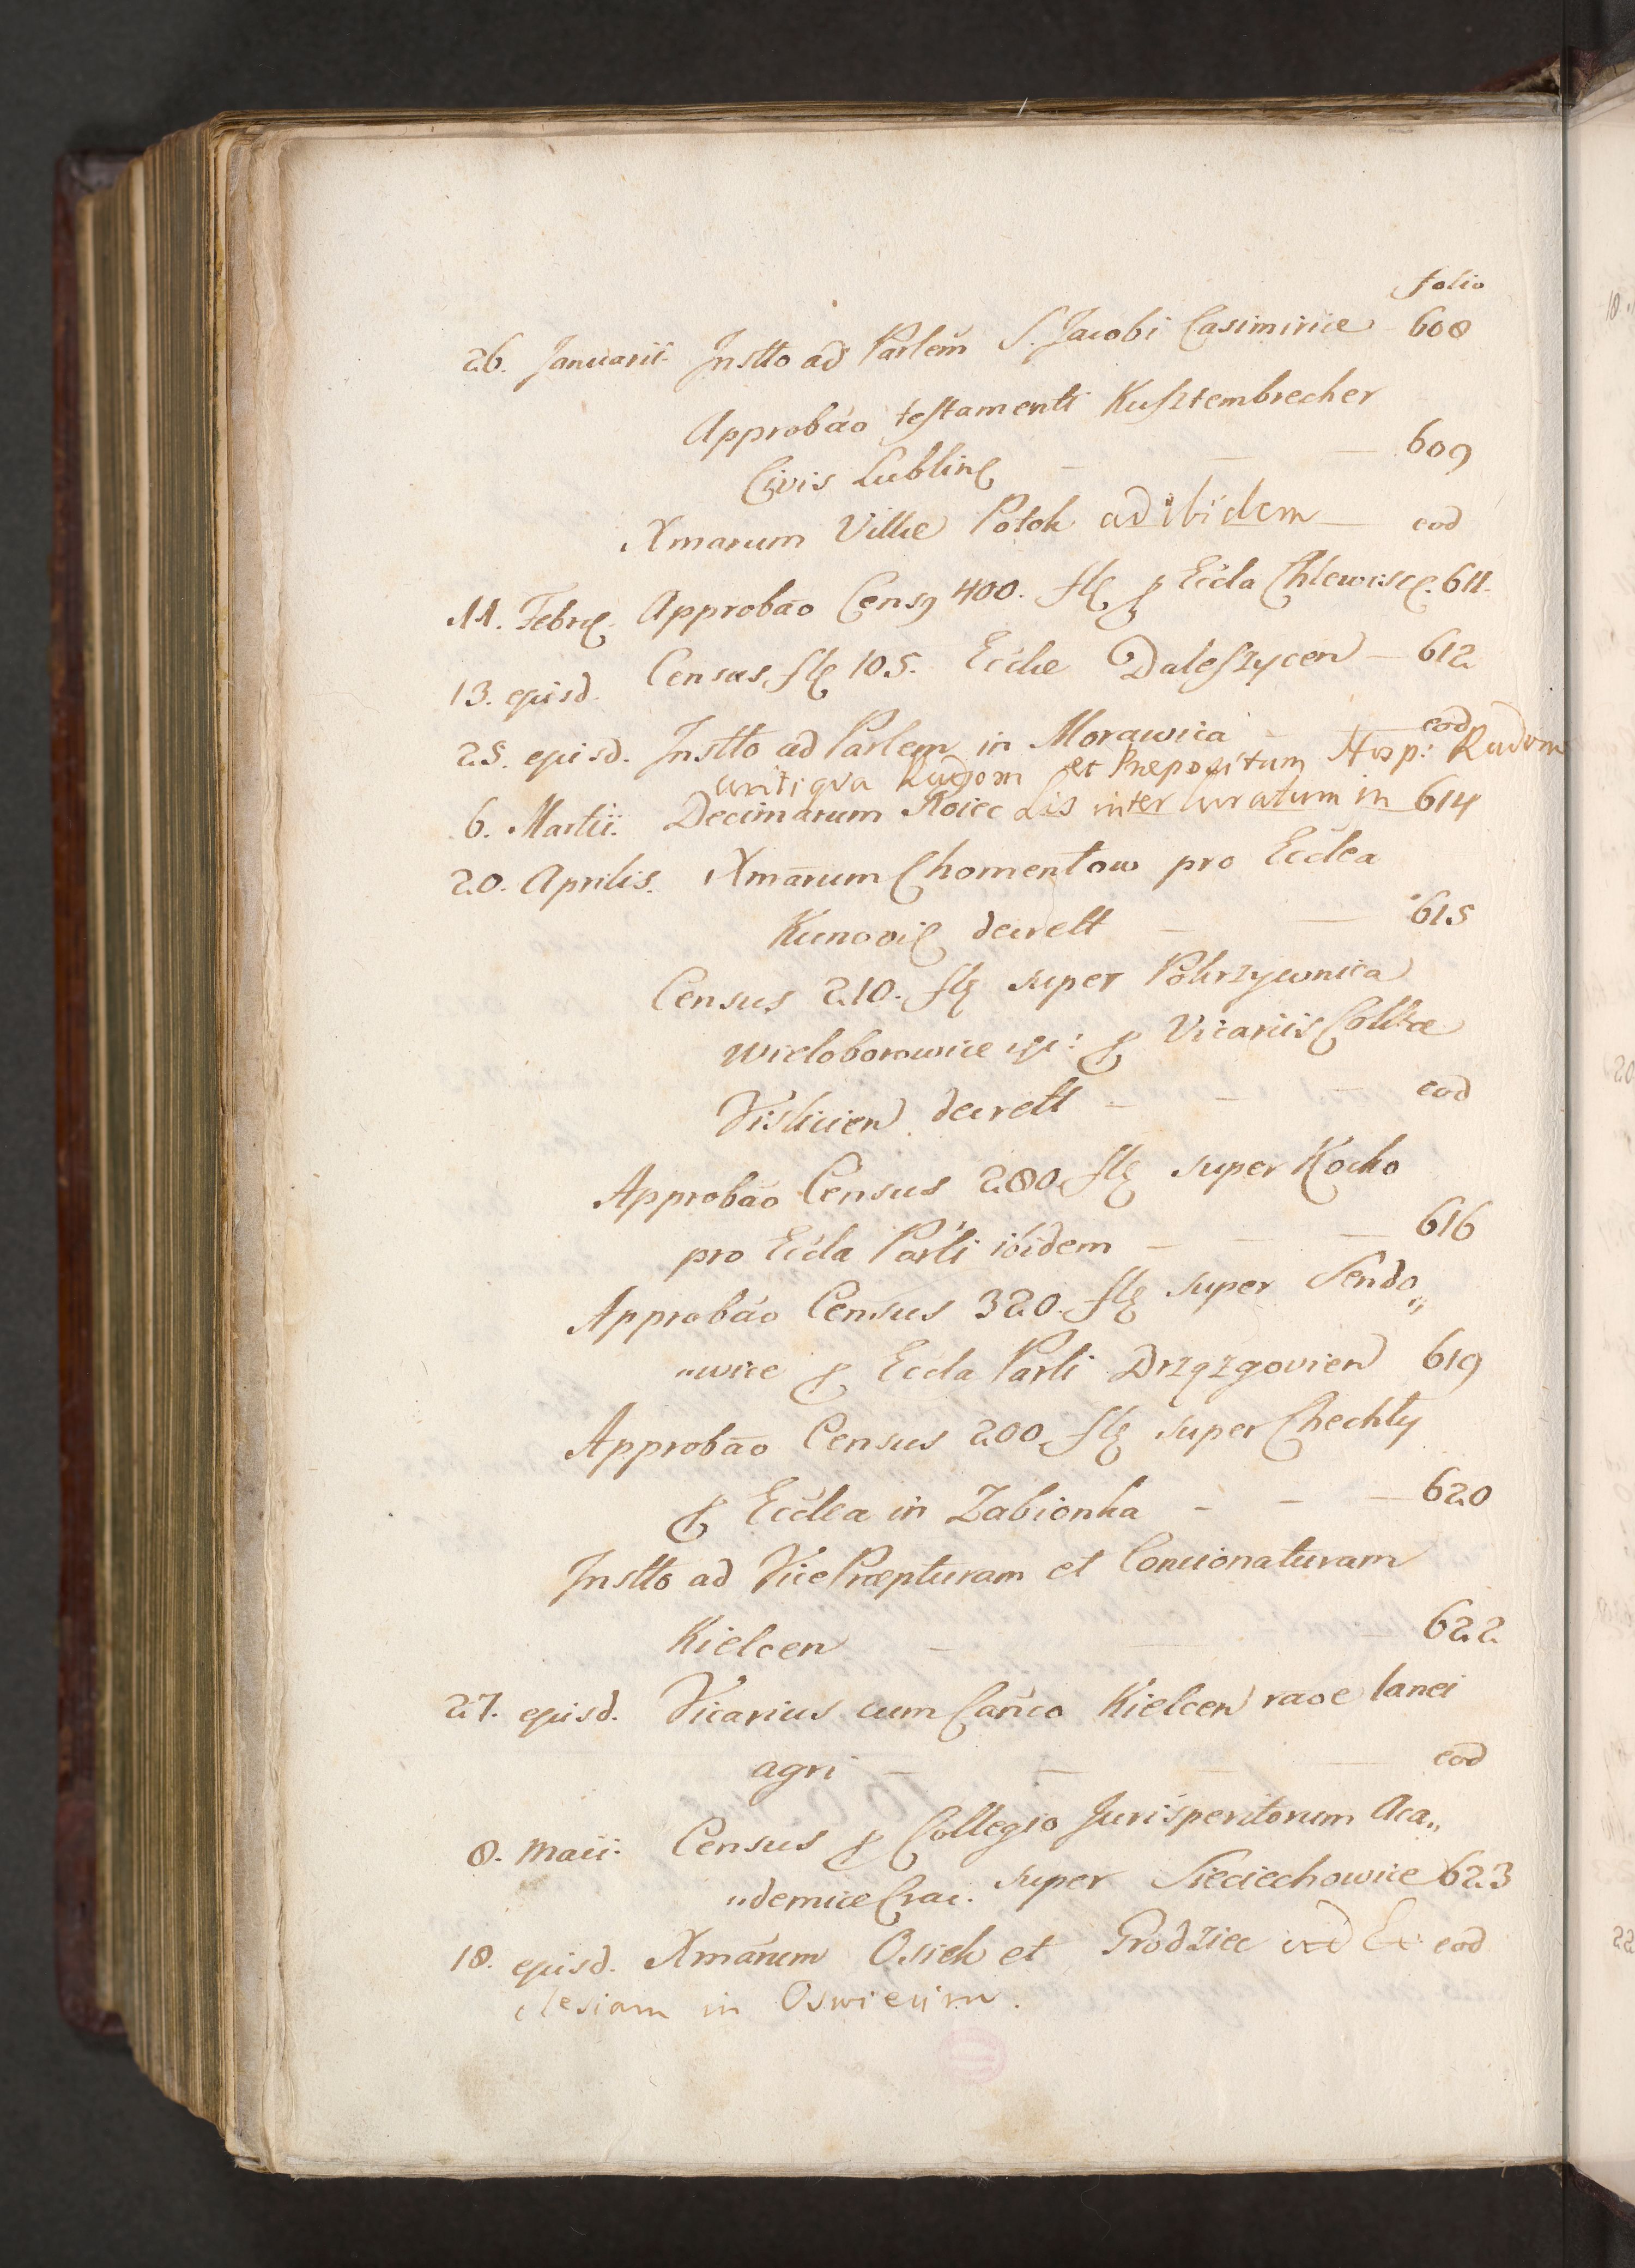 folio
26. Januarii Instto ad Parlem S. Jacobi Casimiriæ 608
Approbao testamenti Kusztembrecher
Civis Lublin 609
Xmarum Villæ Potok ad ibidem eod
11. Febr. Approbao Cens 400. fl p Eccla Chlewisc. 611.
13. ejusd. Census fl 105. Ecclæ Daleszycen 612
25. ejusd. Instto ad Parlem in Morawica eod
antiqva Radom et Præpositum Hosp: Radom
6. Martii. Decimarum Koiec Lis inter Curatum in 614
20. Aprilis. Xmarum Chomentow pro Ecclea
Kunovi decrett 615
Census 210. fl super Pokrzywnica
Wieloborowice p Vicariis Colltæ
Vislicien decrett eod
Approbao Census 280 fl super Kocko
pro Eccla Parli ibidem 616
Approbao Census 320. fl super Sendo„
„wice p Eccla Parli Drzązgovien 619
Approbao Census 200 fl super Chechły
p Ecclea in Zabionka 620
Instto ad VicePræpturam et Concionaturam
Kielcen 622
27. ejusd. Vicarius cum Canco Kielcen raoe lanei
agri eod
8. Maii. Census p Collegio Jurisperitorum Aca„
„demiæ Crac. super Sieciechowice 623
18. ejusd. Xmarum Osiek et Grodziec ad Ec eod
clesiam in Oswiecim.